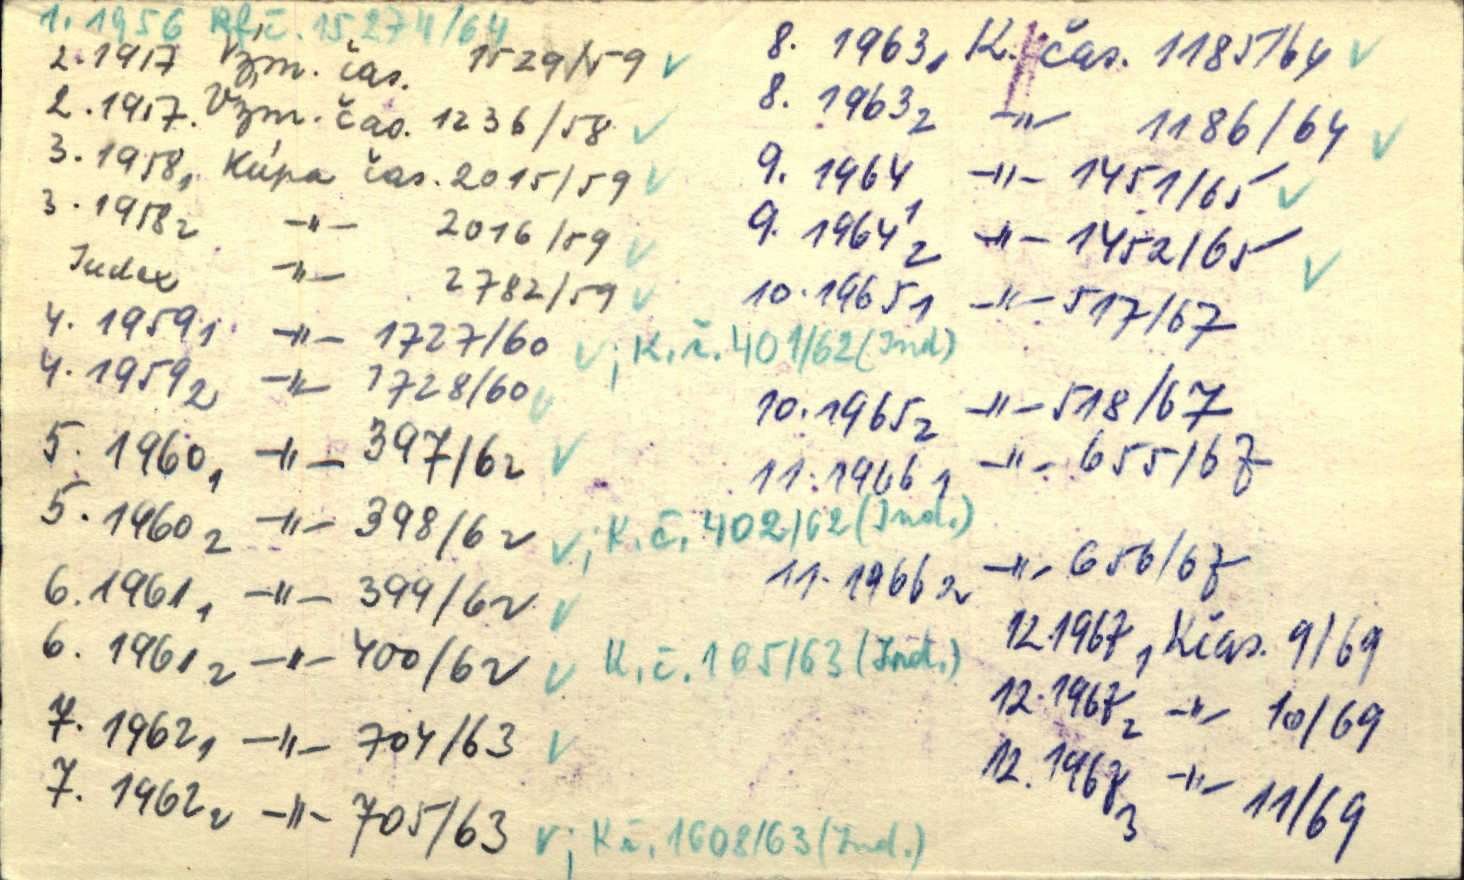 1. 1956 Rf.č. 15.274/64
2. 1957 Vým. čas. 1529/59 ✓
2. 1957. Vým. čas. 1236/58 ✓
3. 1958₁ Kúpa čas. 2015/59 ✓
3. 1958₂ -"- 2016/59 ✓
Index -"- 2782/59 ✓
4. 1959₁ -"- 1727/60 ✓; K.č. 401/62 (Ind)
4. 1959₂ -"- 1728/60 ✓
5. 1960₁ -"- 397/62 ✓
5. 1960₂ -"- 398/62 ✓; K.č. 402/62 (Ind.)
6. 1961₁ -"- 399/62 ✓
6. 1961₂ -"- 400/62 ✓ K.č. 165/63 (Ind.)
7. 1962₁ -"- 704/63 ✓
7. 1962₂ -"- 705/63 ✓; K.č. 1608/63 (Ind.)
8. 1963₁ K. čas. 1185/64 ✓
8. 1963₂ -"- 1186/64 ✓
9. 1964₁ -"- 1451/65 ✓
9. 1964₂ -"- 1452/65 ✓
10. 1965₁ -"- 517/67
10. 1965₂ -"- 518/67
11. 1966₁ -"- 655/67
11. 1966₂ -"- 656/67
12. 1967₁ Kčas. 9/69
12. 1967₂ -"- 10/69
12. 1967₃ -"- 11/69